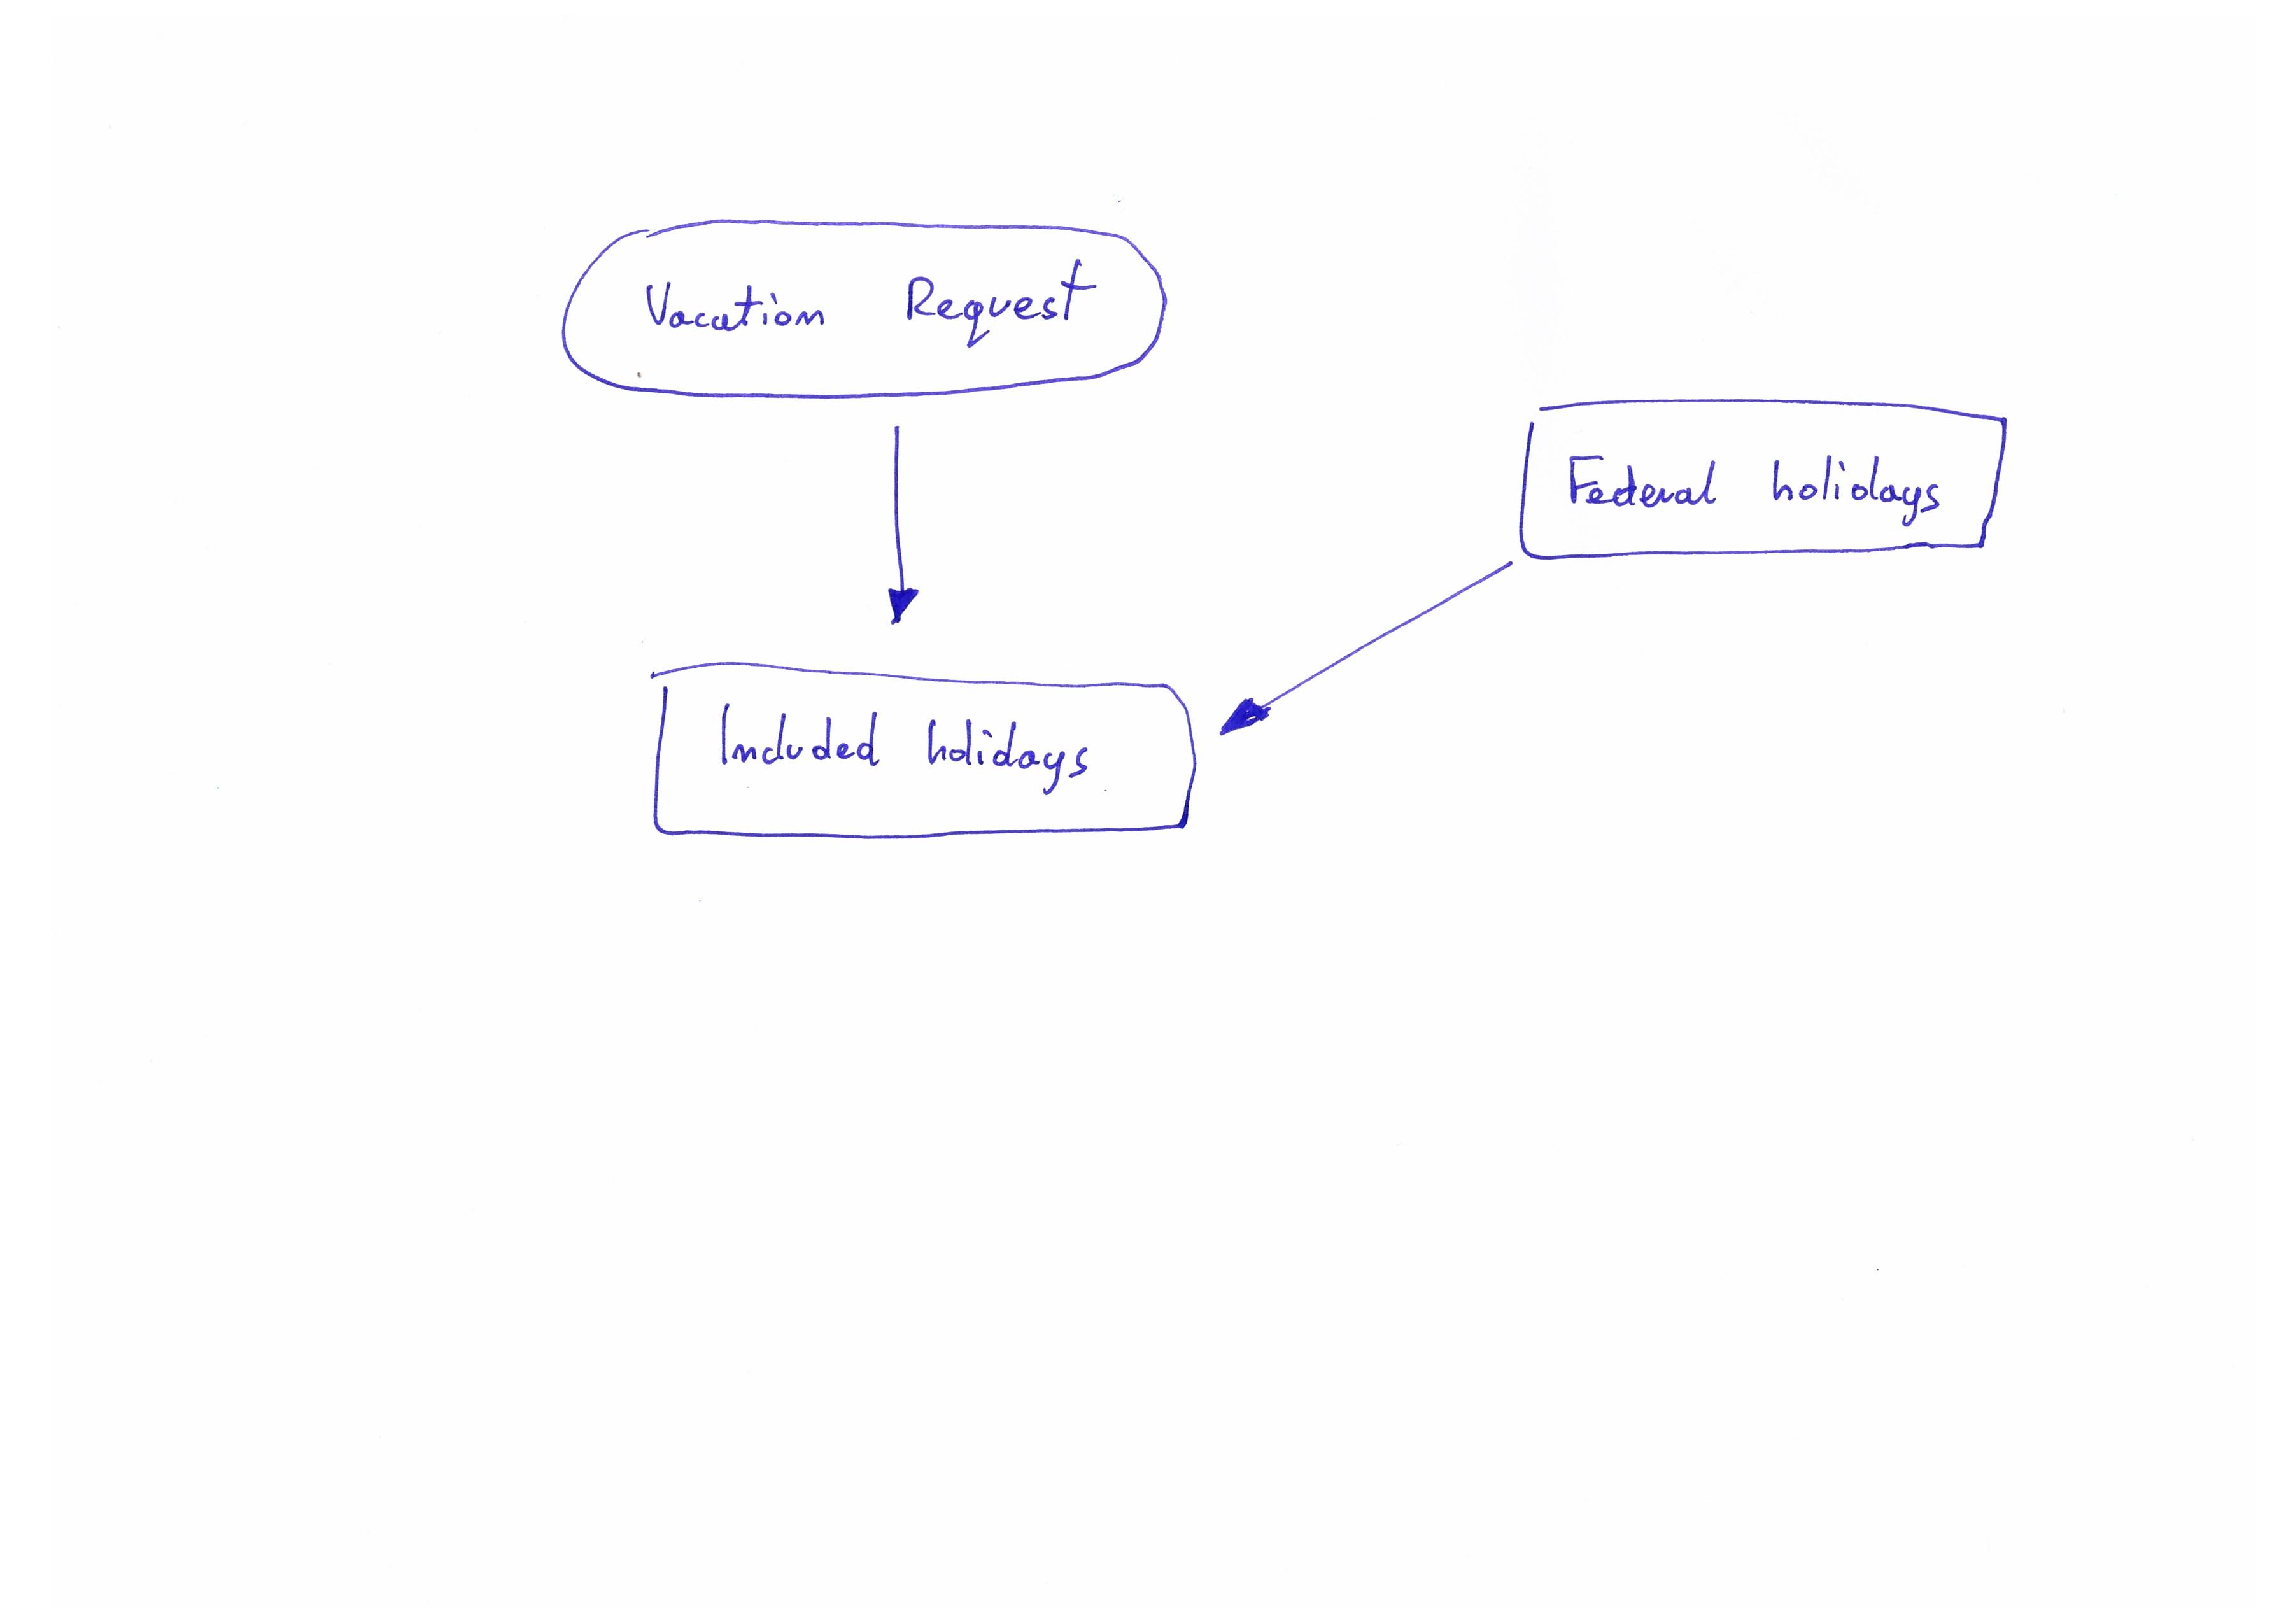 Vacation Request
Federal holidays
Included holidays